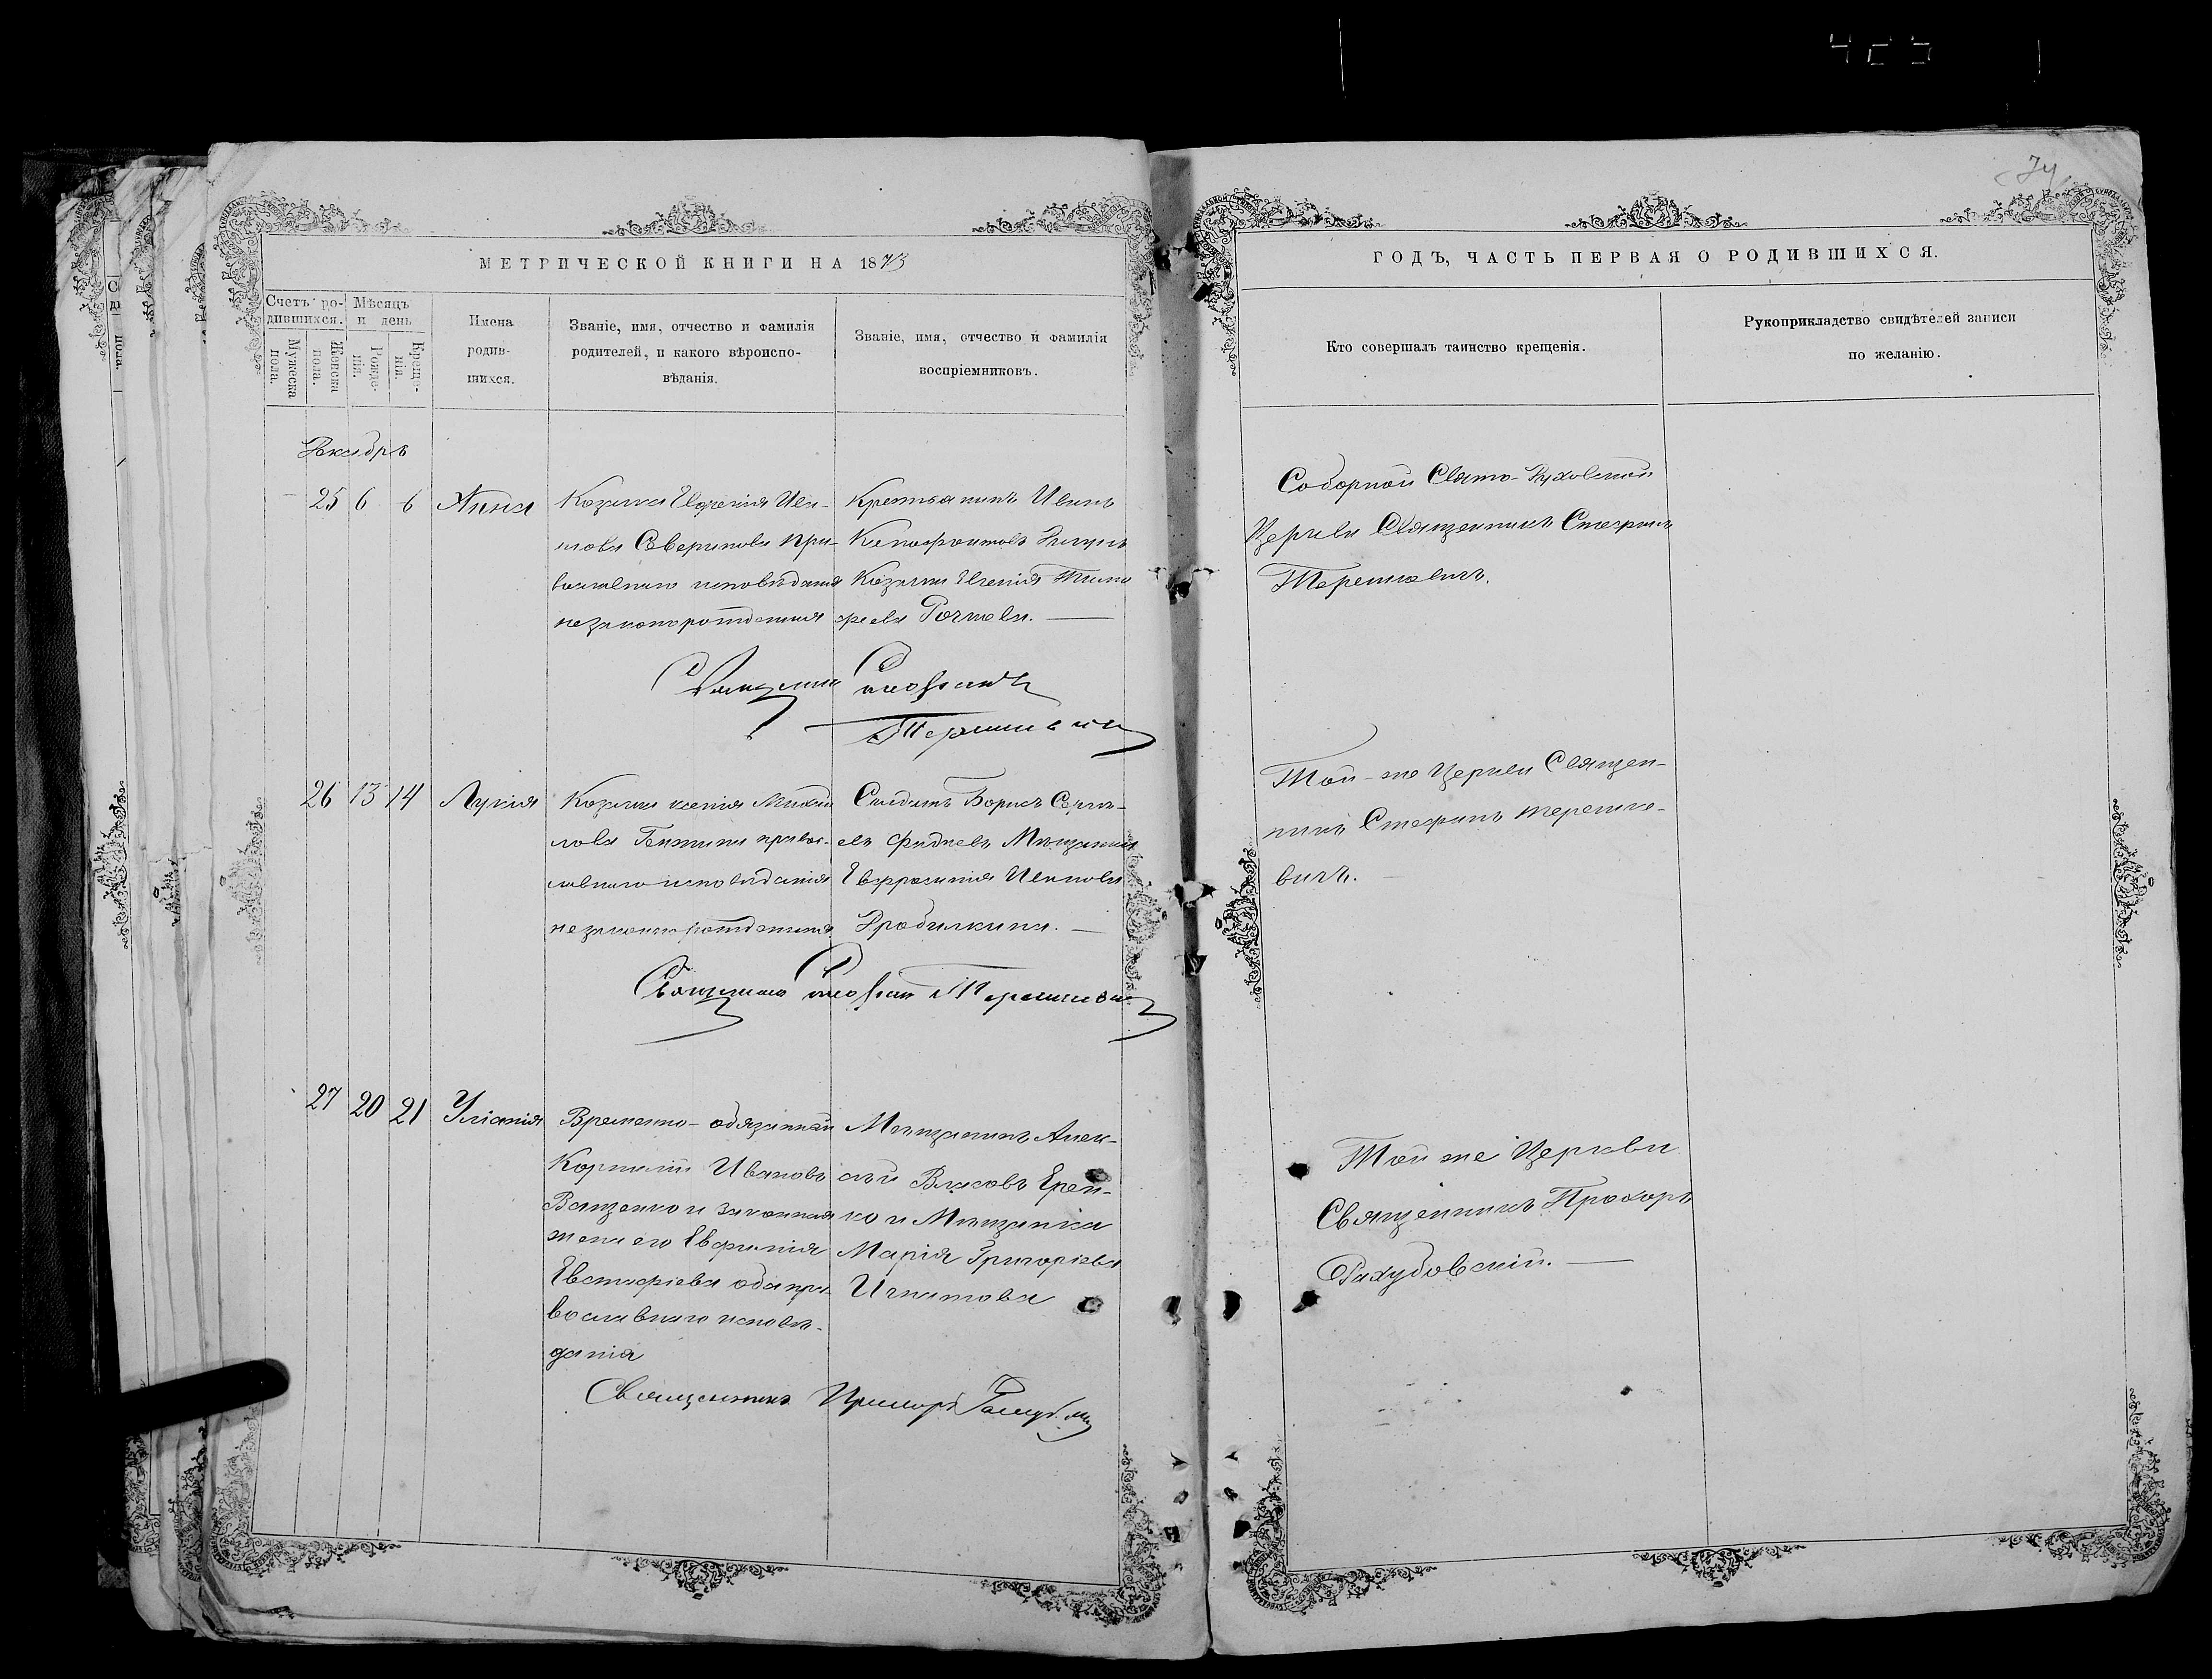 74
МЕТРИЧЕСКОЙ КНИГИ НА 1873
ГОДЪ, ЧАСТЬ ПЕРВАЯ О РОДИВШИХСЯ.
Счетъ ро-
дившихся.
Мужеска
пола.
Женска
пола.
Мѣсяцъ
и день
Рожде-
нія.
Креще-
нія.
Имена
родив-
шихся.
Званіе, имя, отчество и фамилія
родителей, и какого вѣроиспо-
вѣданія.
Званіе, имя, отчество и фамилія
воспріемниковъ.
Кто совершалъ таинство крещенія.
Рукоприкладство свидѣтелей записи
по желанію.
Декабрь
25 6 6 Анна
Козачка Евгенія Ива-
нова Северинова пра-
вославнаго исповѣданія
незаконорожденная
Крестьянинъ Иванъ
Козачка Евгенія Тимо
фѣева
Соборной Свято-Духовской
Церкви Священникъ Стефанъ
Терешкевичъ.
Священникъ Стефанъ
Терешкевичъ
26 13 14 Лукія
Козачка Ксенія Михаи
лова правос-
лавнаго исповѣданія
незаконнорожденная
Солдатъ Борисъ
Мѣщанка
Евфросинія Иванова
Дробилкина.
Той-же Церкви Священ-
никъ Стефанъ Терешке-
вичъ.
Священникъ Стефанъ Терешкевичъ
27 20 21 Уліанія
Временно-обязанный
Корнилій Ивановъ
Ващенко и законная
жена его Евфимія
Евстафіева оба пра
вославнаго исповѣ-
данія
Мѣщанинъ Алек-
сѣй Власовъ Ерем-
ко и Мѣщанка
Марія Григоріева
Игнатова
Той же Церкви
Священникъ Прохоръ
Священникъ Прохоръ